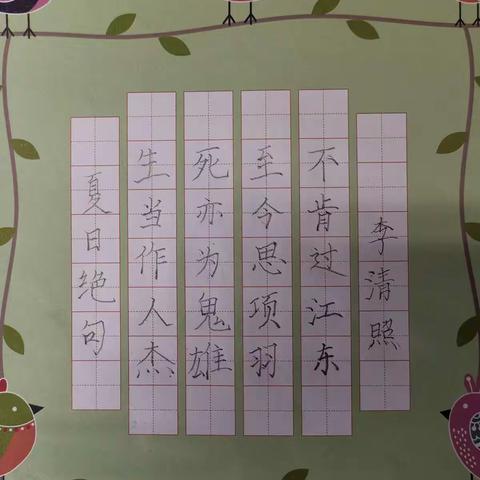 夏日绝句
生当作人杰
死亦为鬼雄
至今思项羽
不肯过江东
李清照